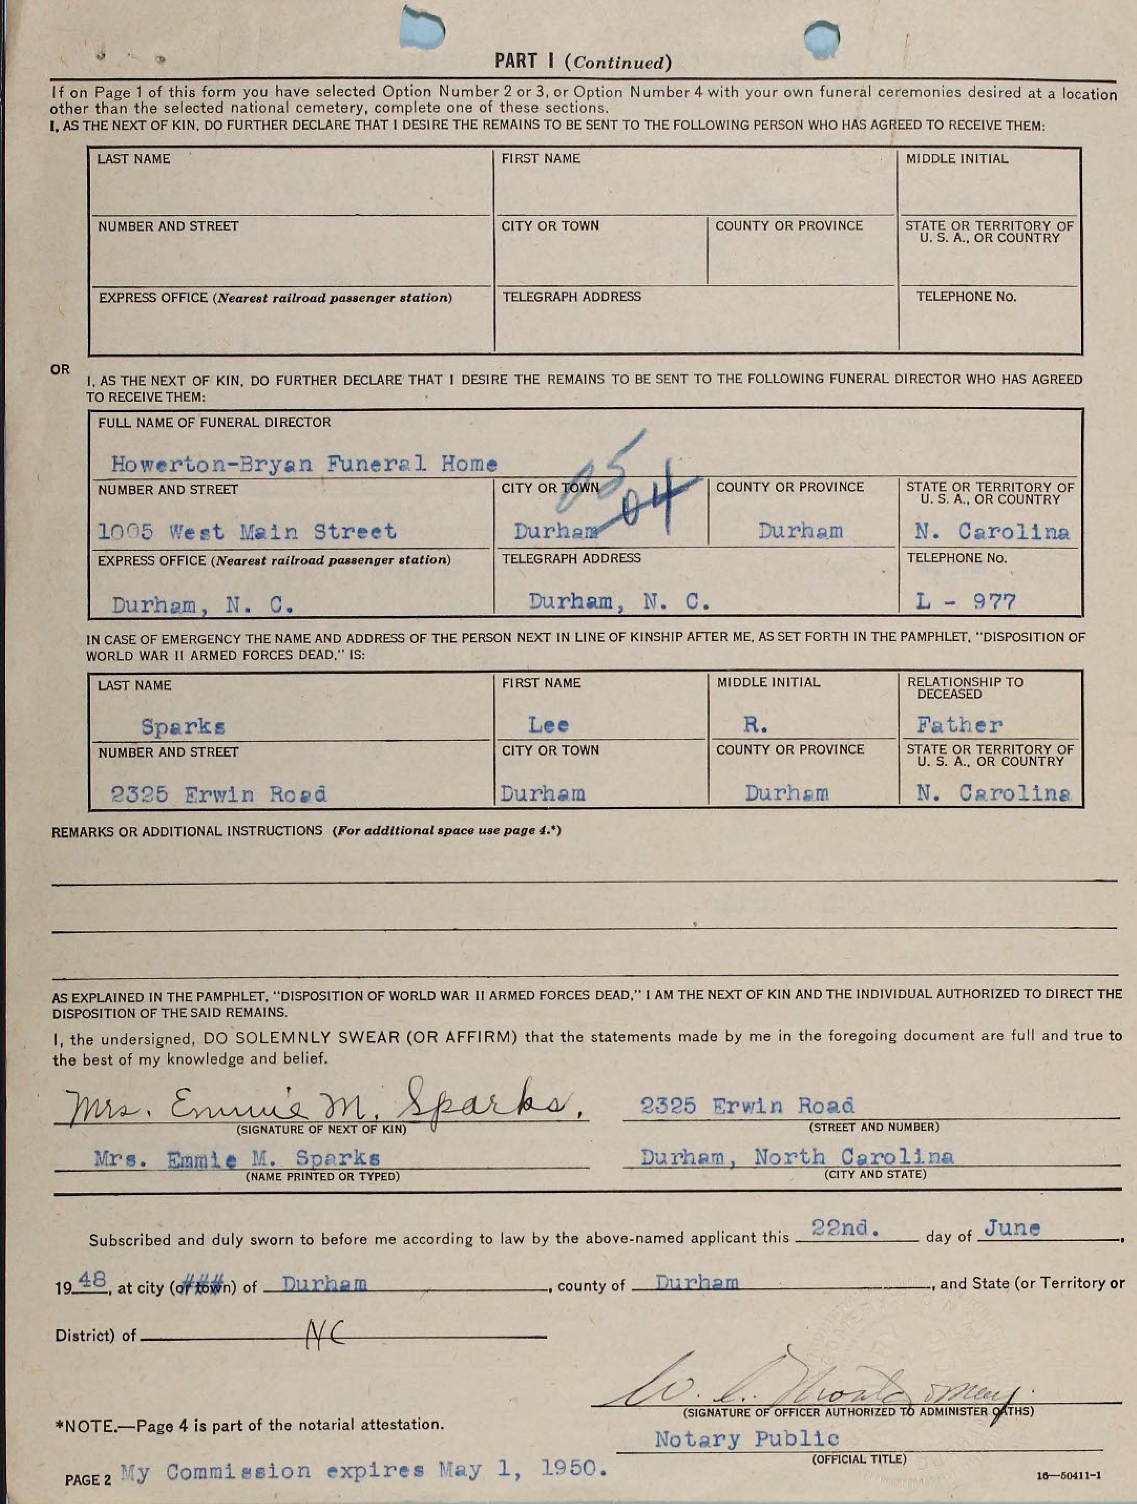 PART I (Continued)
If on Page 1 of this form you have selected Option Number 2 or 3, or Option Number 4 with your own funeral ceremonies desired at a location
other than the selected national cemetery, complete one of these sections.
I, AS THE NEXT OF KIN, DO FURTHER DECLARE THAT I DESIRE THE REMAINS TO BE SENT TO THE FOLLOWING PERSON WHO HAS AGREED TO RECEIVE THEM:
LAST NAME FIRST NAME MIDDLE INITIAL
NUMBER AND STREET CITY OR TOWN COUNTY OR PROVINCE STATE OR TERRITORY OF
U. S. A., OR COUNTRY
EXPRESS OFFICE (Nearest railroad passenger station) TELEGRAPH ADDRESS TELEPHONE No.
OR
I, AS THE NEXT OF KIN, DO FURTHER DECLARE THAT I DESIRE THE REMAINS TO BE SENT TO THE FOLLOWING FUNERAL DIRECTOR WHO HAS AGREED
TO RECEIVE THEM:
FULL NAME OF FUNERAL DIRECTOR
Howerton-Bryan Funeral Home
05
04
NUMBER AND STREET CITY OR TOWN COUNTY OR PROVINCE STATE OR TERRITORY OF
U. S. A., OR COUNTRY
1005 West Main Street Durham Durham N. Carolina
EXPRESS OFFICE (Nearest railroad passenger station) TELEGRAPH ADDRESS TELEPHONE No.
Durham, N. C. Durham, N. C. L - 977
IN CASE OF EMERGENCY THE NAME AND ADDRESS OF THE PERSON NEXT IN LINE OF KINSHIP AFTER ME, AS SET FORTH IN THE PAMPHLET, "DISPOSITION OF
WORLD WAR II ARMED FORCES DEAD," IS:
LAST NAME FIRST NAME MIDDLE INITIAL RELATIONSHIP TO
DECEASED
Sparks Lee R. Father
NUMBER AND STREET CITY OR TOWN COUNTY OR PROVINCE STATE OR TERRITORY OF
U. S. A., OR COUNTRY
2325 Erwin Road Durham Durham N. Carolina
REMARKS OR ADDITIONAL INSTRUCTIONS (For additional space use page 4.*)
AS EXPLAINED IN THE PAMPHLET, "DISPOSITION OF WORLD WAR II ARMED FORCES DEAD," I AM THE NEXT OF KIN AND THE INDIVIDUAL AUTHORIZED TO DIRECT THE
DISPOSITION OF THE SAID REMAINS.
I, the undersigned, DO SOLEMNLY SWEAR (OR AFFIRM) that the statements made by me in the foregoing document are full and true to
the best of my knowledge and belief.
Mrs. Emmie M. Sparks. 2325 Erwin Road
(SIGNATURE OF NEXT OF KIN) (STREET AND NUMBER)
Mrs. Emmie M. Sparks Durham, North Carolina
(NAME PRINTED OR TYPED) (CITY AND STATE)
Subscribed and duly sworn to before me according to law by the above-named applicant this 22nd. day of June,
1948, at city (or town) of Durham, county of Durham, and State (or Territory or
District) of NC
W. C. Montgomery
(SIGNATURE OF OFFICER AUTHORIZED TO ADMINISTER OATHS)
*NOTE.—Page 4 is part of the notarial attestation.
Notary Public
(OFFICIAL TITLE)
PAGE 2 My Commission expires May 1, 1950.
16—50411-1